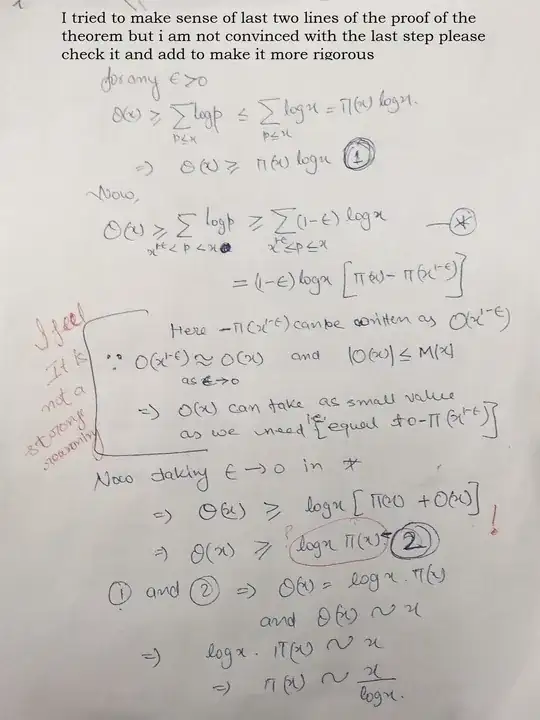 I tried to make sense of last two lines of the proof of the
theorem but i am not convinced with the last step please
check it and add to make it more rigorous
for any ϵ>0
θ(x) ≥ Σ_{p≤x} log p ≤ Σ_{p≤x} log x = π(x) log x.
⇒ θ(x) ≥ π(x) log x ①
Now,
θ(x) ≥ Σ_{x^{1-ϵ}<p<x} log p ≥ Σ_{x^{1-ϵ}≤p≤x} (1-ϵ) log x —(*)
= (1-ϵ) log x [π(x) - π(x^{1-ϵ})]
Here -π(x^{1-ϵ}) can be written as O(x^{1-ϵ})
∵ O(x^{1-ϵ}) ≈ O(x) and |O(x)| ≤ M|x|
as ϵ→0
⇒ O(x) can take as small value
as we need [i.e. equal to -π(x^{1-ϵ})]
I feel
It is
not a
strong
reasoning
Now taking ϵ→0 in *
⇒ θ(x) ≥ log x [π(x) + O(x)]
⇒ θ(x) ≥ log x π(x) — ②
? !
① and ② ⇒ θ(x) = log x . π(x)
and θ(x) ~ x
⇒ log x . π(x) ~ x
⇒ π(x) ~ x/log x.